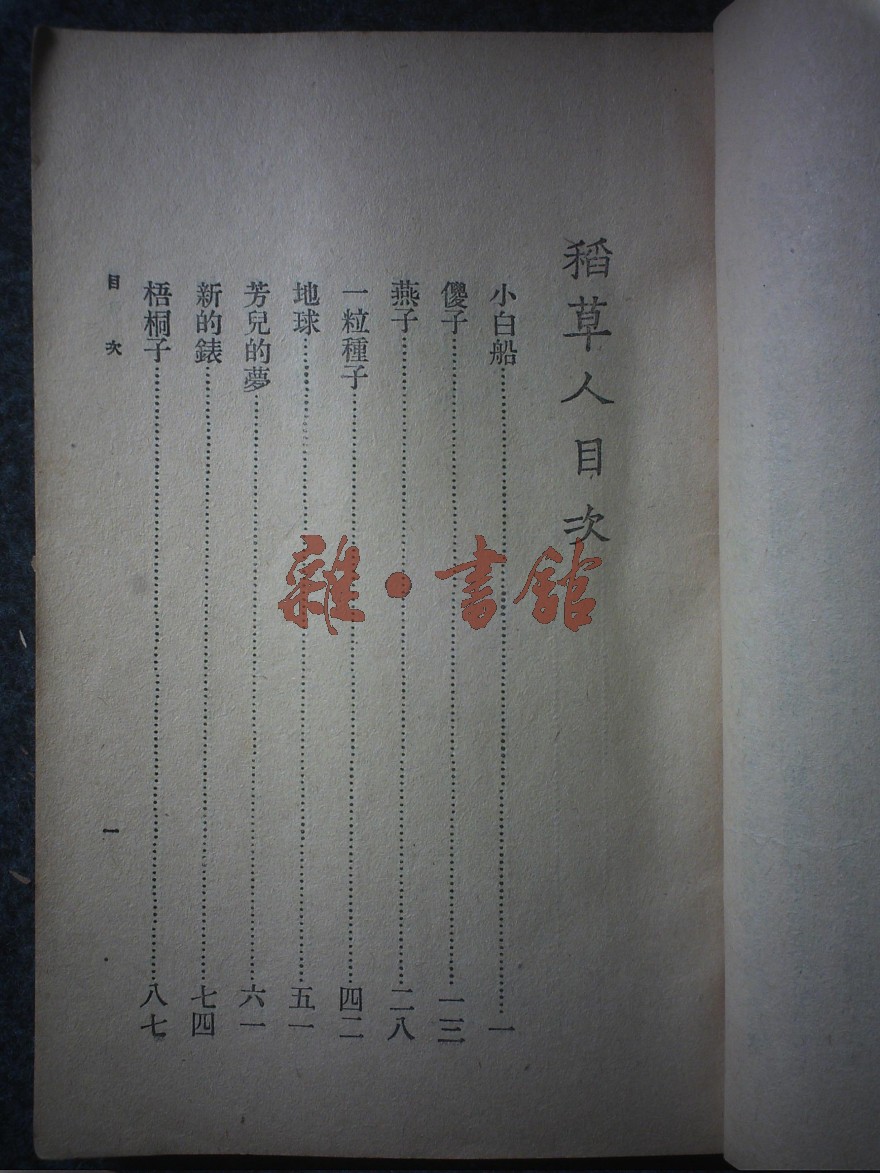 稻草人目次
小白船……一
傻子……一三
燕子……二八
一粒種子……四二
地球……五一
芳兒的夢……六一
新的錶……七四
梧桐子……八七
目次
一
雜·書館